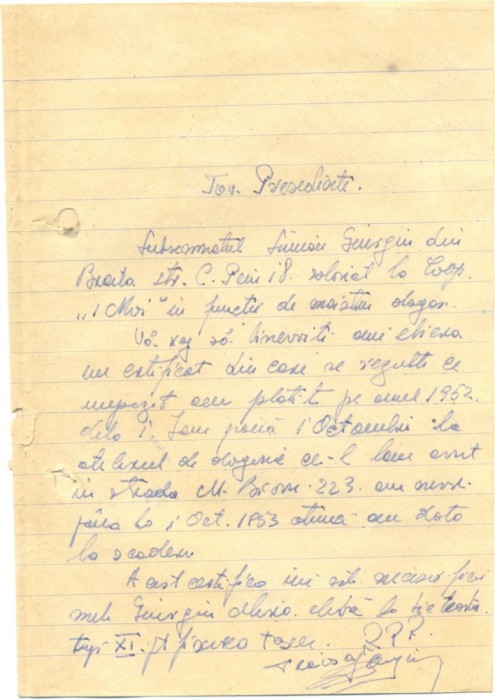 Tov. Presedinte.
Subsemnatul Simion Giurgiu din
Braila str. C. 18. salariat la Coop.
„1 Mai" in functie de maistru dogar.
Vă rog să binevoiti ami elibera
un certificat din care se rezulte ce
impozit am platit pe anul 1952.
dela 1. Ian pănă 1 Octombrie la
atelierul de dogărie ce-l am avut
in strada M. 223. am
păna la 1 Oct. 1953 atunci am dato
la scadere
Acest certificat imi este necesar ficei
mele Giurgiu elevă la
XI. pt fixarea taxei.